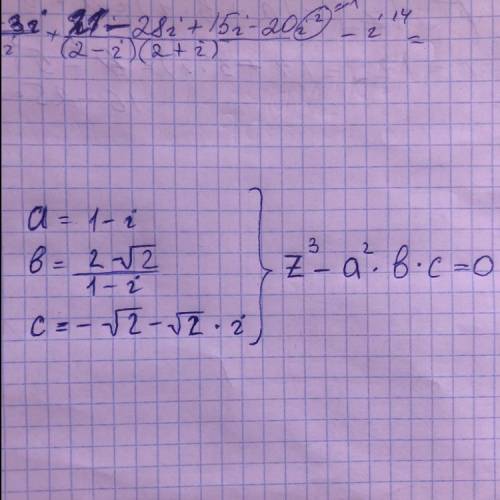 3i + 21 - 28i + 15i - 20i² - i¹⁴ =
i (2-i)(2+i)
a = 1 - i
b = 2√2 / 1 - i
c = -√2 - √2 · i
z³ - a² · b · c = 0